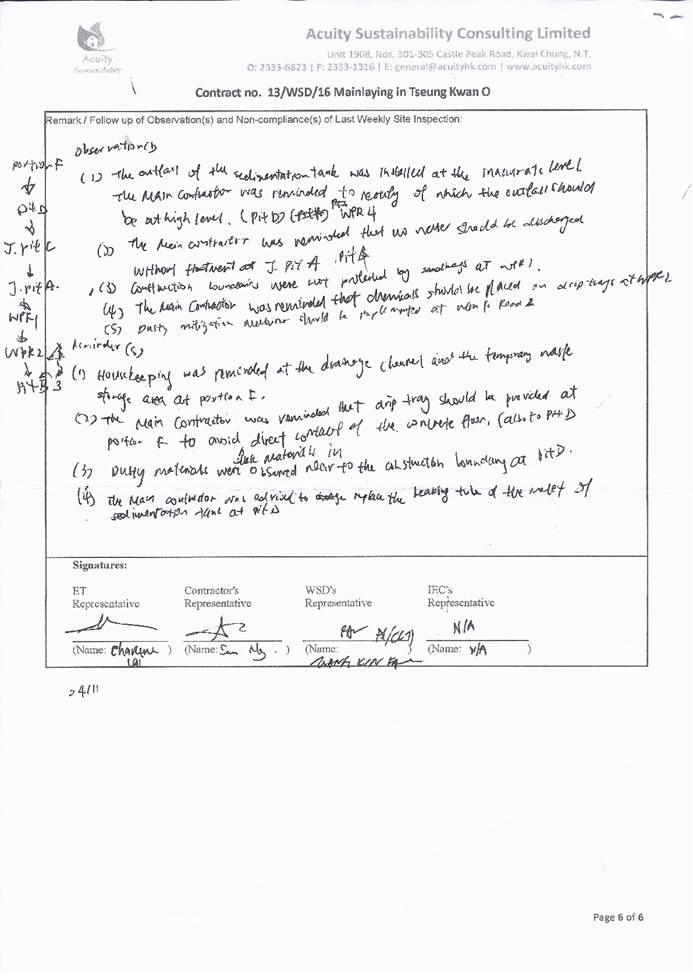 Acuity Sustainability Consulting Limited
Unit 1908, Nos. 301-305 Castle Peak Road, Kwai Chung, N.T.
O: 2333-6823 | F: 2333-1316 | E: general@acuityhk.com | www.acuityhk.com
Acuity
Sustainability
Contract no. 13/WSD/16 Mainlaying in Tseung Kwan O
Remark / Follow up of Observation(s) and Non-compliance(s) of Last Weekly Site Inspection:
Observation(s)
(1) The outfall of the sedimentation tank was installed at the inaccurate level
The Main Contractor was reminded to rectify of which the outfall should
be at high level. (Pit D) WPR4
(2) The Main contractor was reminded that no water should be discharged
without treatment at J. Pit A. Pit A
(3) Construction boundaries were not protected by sandbags at WPR1.
(4) The Main Contractor was reminded that chemicals should be placed on drip trays at WPR2
(5) Dusty mitigation measure should be implemented at Road 2
Reminder(s)
(1) Housekeeping was reminded at the drainage channel and the temporary waste
storage area at portion F.
(2) The Main Contractor was reminded that drip tray should be provided at
portion F to avoid direct contact of the concrete floor. (also to Pit D
(3) Dusty materials were observed near to the construction boundary at Pit D.
(4) The Main contractor was advised to replace the leaking tube of the inlet of
sedimentation tank at Pit D
Portion F
Pit D
J. Pit C
J. Pit A.
WPR1
WPR2
Signatures:
ET
Representative
Contractor's
Representative
WSD's
Representative
IEC's
Representative
N/A
(Name: Charlene Lai )
(Name: Sam Ng. )
(Name: )
(Name: N/A )
24/11
Page 6 of 6